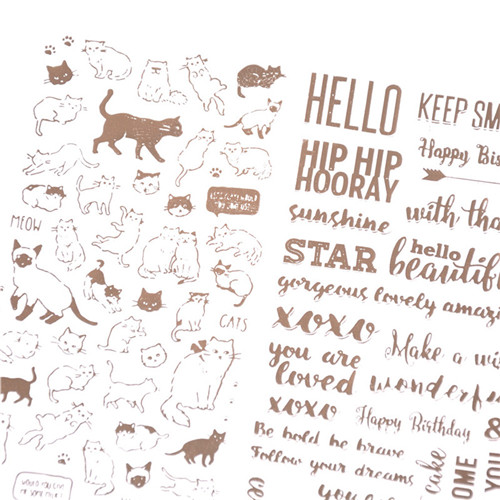 MEOW
CATS
HELLO
KEEP SM
HIP HIP
HOORAY
Happy Bi
sunshine
with tha
STAR
hello
beautiful
gorgeous lovely amazi
xoxo
Make a wi
you are
loved
wonderfu
xoxo
Happy Birthday
Be bold be brave
Follow your dreams
&
YOU
OME
cake
you